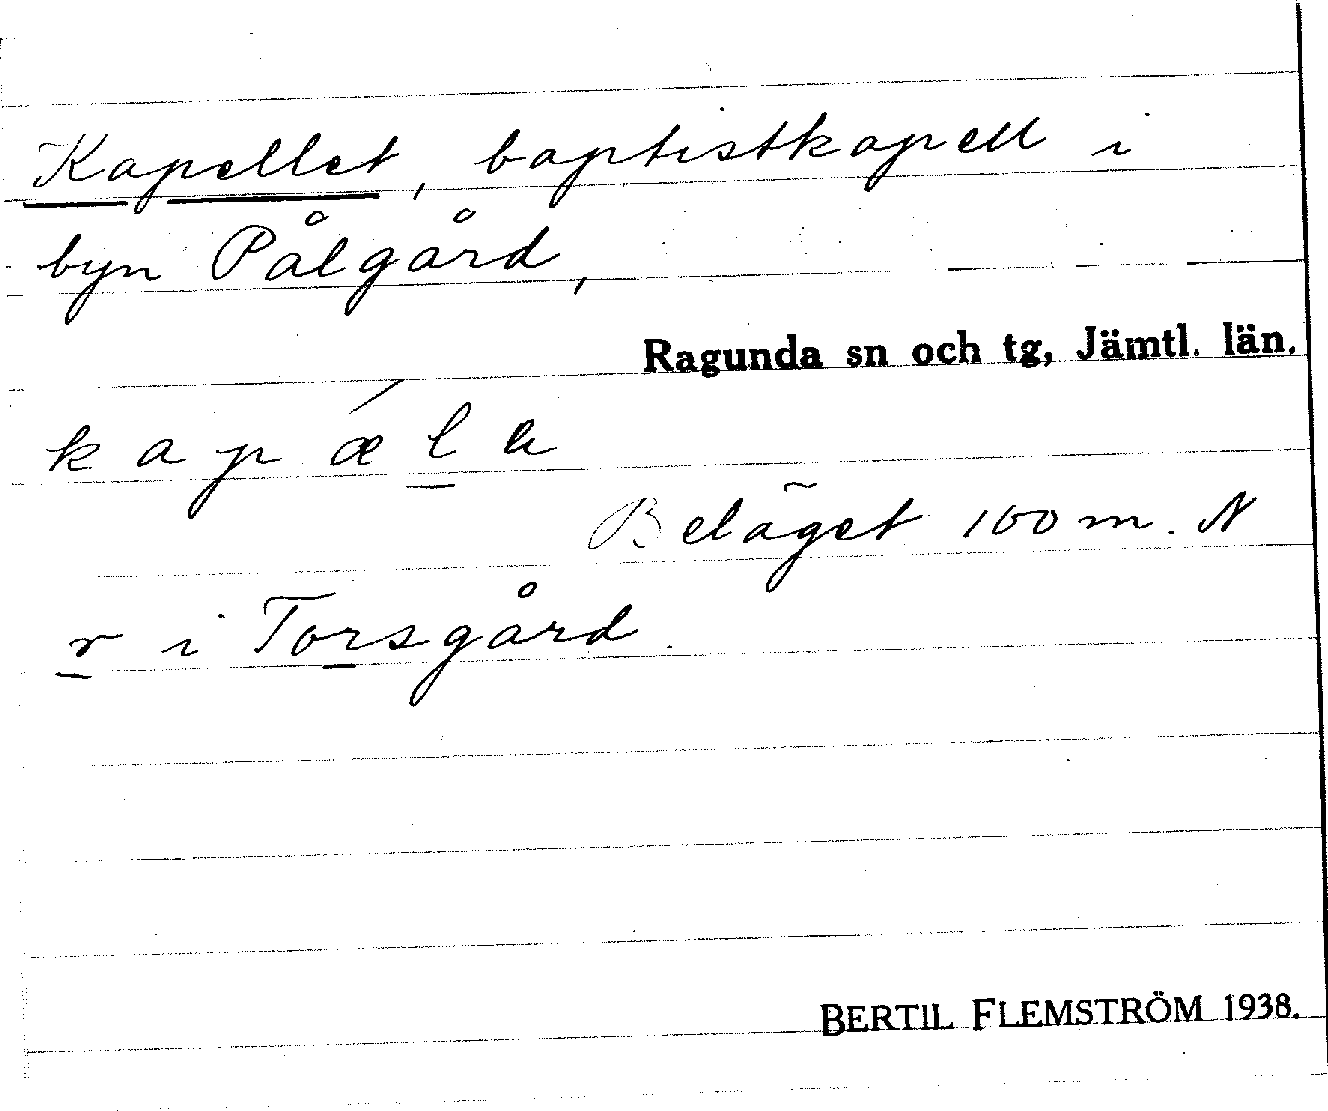 Kapellet, baptistkapell i
byn Pålgård,
Ragunda sn och tg, Jämtl. län.
k a p ǽ l̲ a
Beläget 100 m. N
r̲ i Tor̲sgård.
BERTIL FLEMSTRÖM 1938.